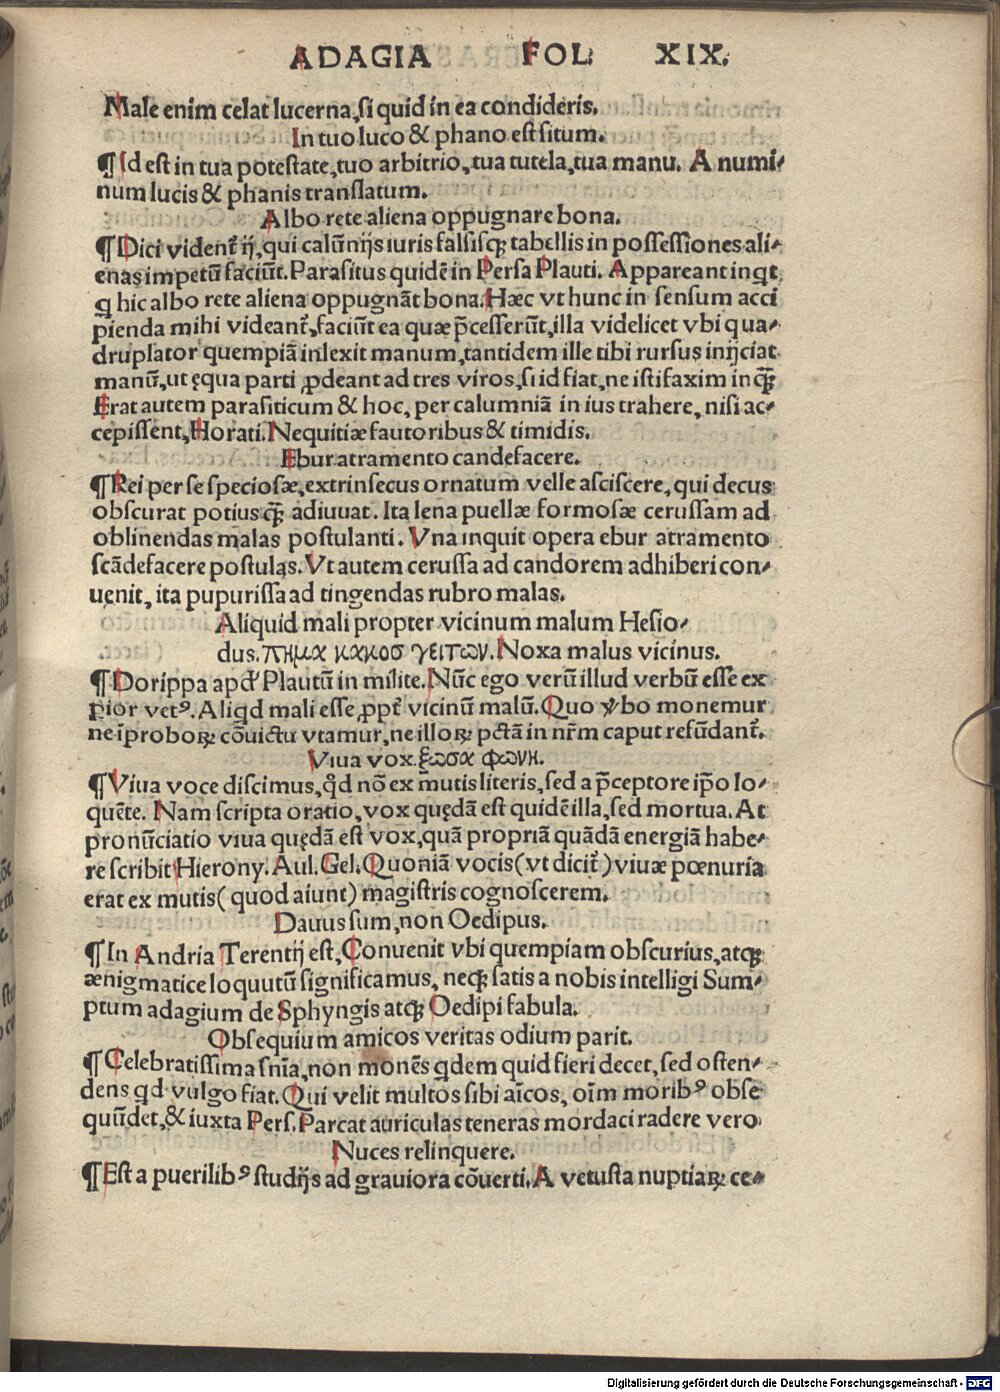 ADAGIA FOL. XIX.
Male enim celat lucerna, si quid in ea condideris.
In tuo luco & phano est situm.
¶ Id est in tua potestate, tuo arbitrio, tua tutela, tua manu. A numi⸗
num lucis & phanis translatum.
Albo rete aliena oppugnare bona.
¶ Dici videntᷣ ij, qui calūnijs iuris falsisqꝫ tabellis in possessiones ali⸗
enas impetū faciūt. Parasitus quidē in Persa Plauti. Appareant inqt,
q hic albo rete aliena oppugnāt bona. Hæc vt hunc in sensum acci
pienda mihi videantᷣ, faciūt ea quæ p̄cesserūt, illa videlicet vbi qua⸗
druplator quempiā inlexit manum, tantidem ille tibi rursus inijciat
manū, ut ęqua parti ꝓdeant ad tres viros, si id fiat, ne isti faxim inqꝫ̄
Erat autem parasiticum & hoc, per calumniā in ius trahere, nisi ac⸗
cepissent, Horati. Nequitiæ fautoribus & timidis.
Ebur atramento candefacere.
¶ Rei per se speciosæ, extrinsecus ornatum velle asciscere, qui decus
obscurat potius qꝫ̄ adiuuat. Ita lena puellæ formosæ cerussam ad
oblinendas malas postulanti. Vna inquit opera ebur atramento
scādefacere postulas. Vt autem cerussa ad candorem adhiberi con⸗
uenit, ita pupurissa ad tingendas rubro malas.
Aliquid mali propter vicinum malum Hesio⸗
dus. πημα κακοσ γειτων. Noxa malus vicinus.
¶ Dorippa apd' Plautū in milite. Nūc ego verū illud verbū esse ex
pior vetꝰ. Aliqd mali esse ꝓptᷣ vicinū malū. Quo v̾bo monemur
ne īproboꝝ cōuictu vtamur, ne illoꝝ pctā in nr̄m caput refūdantᷣ.
Viua vox. ξωσα φωνη.
¶ Viua voce discimus, qd nō ex mutis literis, sed a p̄ceptore ip̄o lo⸗
quēte. Nam scripta oratio, vox quędā est quidē illa, sed mortua. At
pronūciatio viua quędā est vox, quā propriā quādā energiā habe⸗
re scribit Hierony. Aul. Gel. Quoniā vocis (vt dicitᷣ) viuæ pœnuria
erat ex mutis (quod aiunt) magistris cognoscerem.
Dauus sum, non Oedipus.
¶ In Andria Terentij est, Conuenit vbi quempiam obscurius, atqꝫ
ænigmatice loquutū significamus, neqꝫ satis a nobis intelligi Sum⸗
ptum adagium de Sphyngis atqꝫ Oedipi fabula.
Obsequium amicos veritas odium parit.
¶ Celebratissima sn̄ia, non monēs qdem quid fieri decet, sed osten⸗
dens qd vulgo fiat. Qui velit multos sibi aīcos, oīm moribꝰ obse
quūdet, & iuxta Pers. Parcat auriculas teneras mordaci radere vero
Nuces relinquere.
¶ Est a puerilibꝰ studijs ad grauiora cōuerti. A vetusta nuptiaꝝ ce⸗
Digitalisierung gefördert durch die Deutsche Forschungsgemeinschaft - DFG